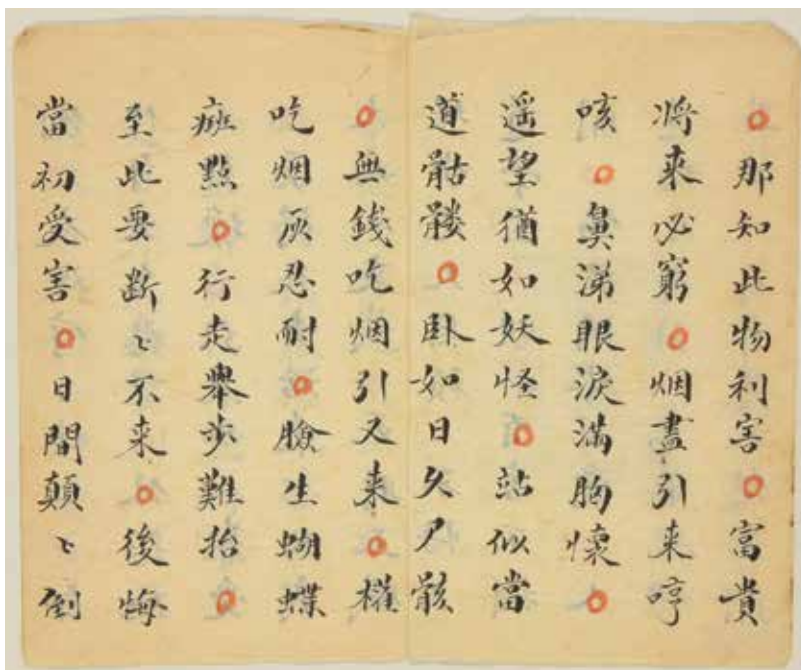 ○那知此物利害○富貴
将来必窮○烟盡引来哼
咳○鼻涕眼淚滿胸懷○
遥望猶如妖怪○站似當
道骷髏○卧如日久尸骸
○無錢吃烟引又来○權
吃烟灰忍耐○臉生蝴蝶
痣點○行走舉步難抬○
至此要断〻不来○後悔
當初受害○日間顛〻倒